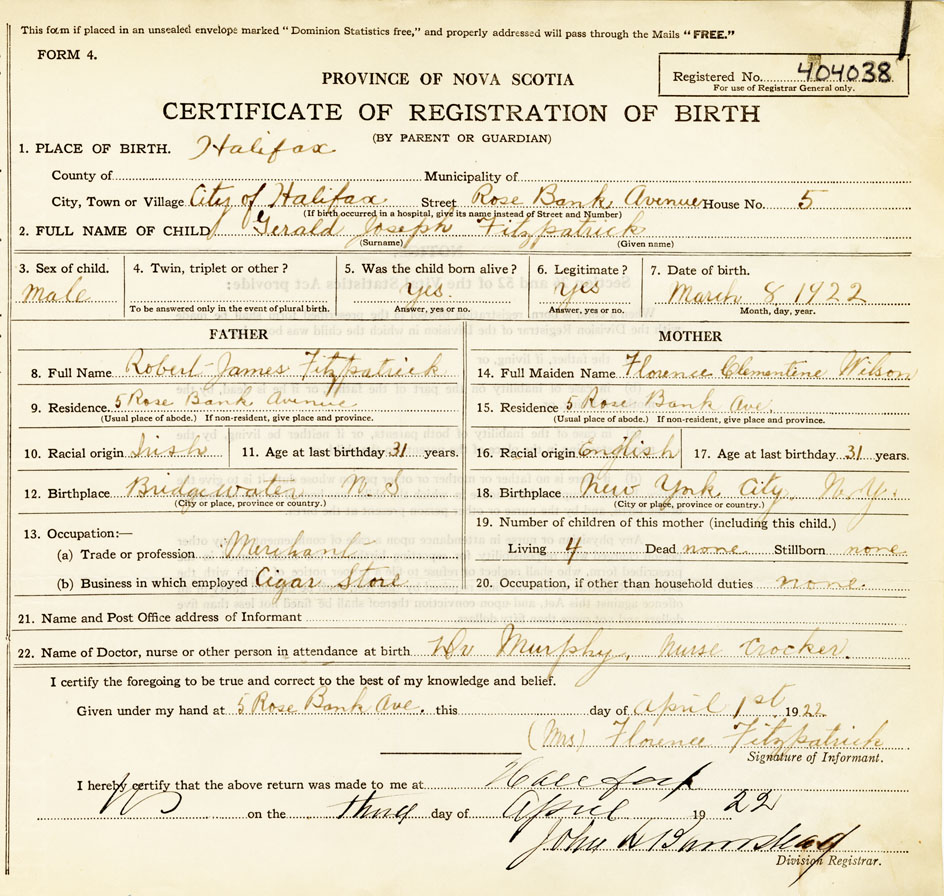 This form if placed in an unsealed envelope marked "Dominion Statistics free," and properly addressed will pass through the Mails "FREE."
FORM 4.
PROVINCE OF NOVA SCOTIA
Registered No. 404038
For use of Registrar General only.
CERTIFICATE OF REGISTRATION OF BIRTH
(BY PARENT OR GUARDIAN)
1. PLACE OF BIRTH. Halifax
County of Municipality of
City, Town or Village City of Halifax Street Rose Bank Avenue House No. 5
(If birth occurred in a hospital, give its name instead of Street and Number)
2. FULL NAME OF CHILD Gerald Joseph Fitzpatrick
(Surname) (Given name)
3. Sex of child. 4. Twin, triplet or other? 5. Was the child born alive? 6. Legitimate? 7. Date of birth.
Male yes. yes March 8 1922
To be answered only in the event of plural birth. Answer, yes or no. Answer, yes or no. Month, day, year.
FATHER MOTHER
8. Full Name Robert James Fitzpatrick 14. Full Maiden Name Florence Clementene Wilson
9. Residence. 5 Rose Bank Avenue 15. Residence 5 Rose Bank Ave.
(Usual place of abode.) If non-resident, give place and province. (Usual place of abode.) If non-resident, give place and province.
10. Racial origin Irish 11. Age at last birthday 31 years. 16. Racial origin English 17. Age at last birthday 31 years.
12. Birthplace Bridgewater N. S 18. Birthplace New York City, N. Y.
(City or place, province or country.) (City or place, province or country.)
13. Occupation:— 19. Number of children of this mother (including this child.)
(a) Trade or profession Merchant Living 4 Dead none Stillborn none
(b) Business in which employed Cigar Store 20. Occupation, if other than household duties none.
21. Name and Post Office address of Informant
22. Name of Doctor, nurse or other person in attendance at birth Dr Murphy, Nurse Crocker.
I certify the foregoing to be true and correct to the best of my knowledge and belief.
Given under my hand at 5 Rose Bank Ave. this day of April 1st 1922
(Mrs) Florence Fitzpatrick
Signature of Informant.
I hereby certify that the above return was made to me at Halifax
on the third day of April 1922
John
Division Registrar.